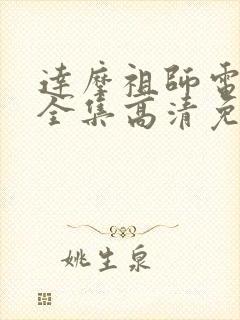 達摩祖師電
全集高清免
姚生泉